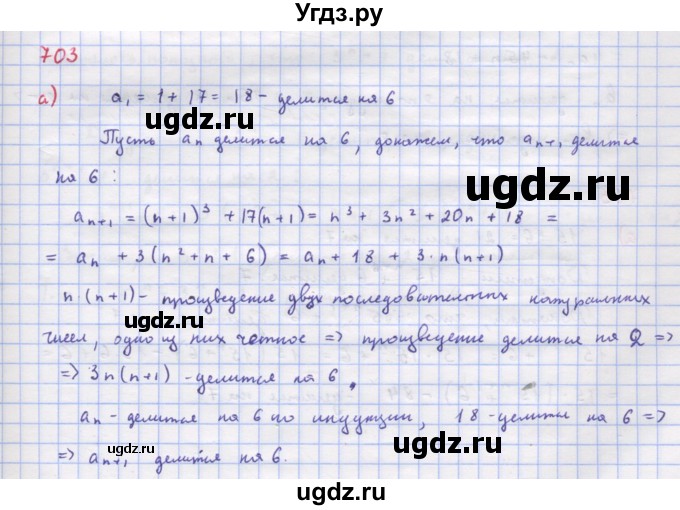 Угдз.ру
703
а) a₁ = 1 + 17 = 18 - делится на 6
ugdz.ru
Пусть aₙ делится на 6, докажем, что aₙ₊₁ делится
на 6 :
ugdz.ru
aₙ₊₁ = (n+1)³ + 17(n+1) = n³ + 3n² + 20n + 18 =
ugdz.ru
= aₙ + 3(n² + n + 6) = aₙ + 18 + 3·n(n+1)
n(n+1) - произведение двух последовательных натуральных
ugdz.ru
чисел, одно из них четное => произведение делится на 2 =>
=> 3n(n+1) - делится на 6,
ugdz.ru
aₙ - делится на 6 по индукции, 18 - делится на 6 =>
ugdz.ru
=> aₙ₊₁ делится на 6.
ugdz.ru